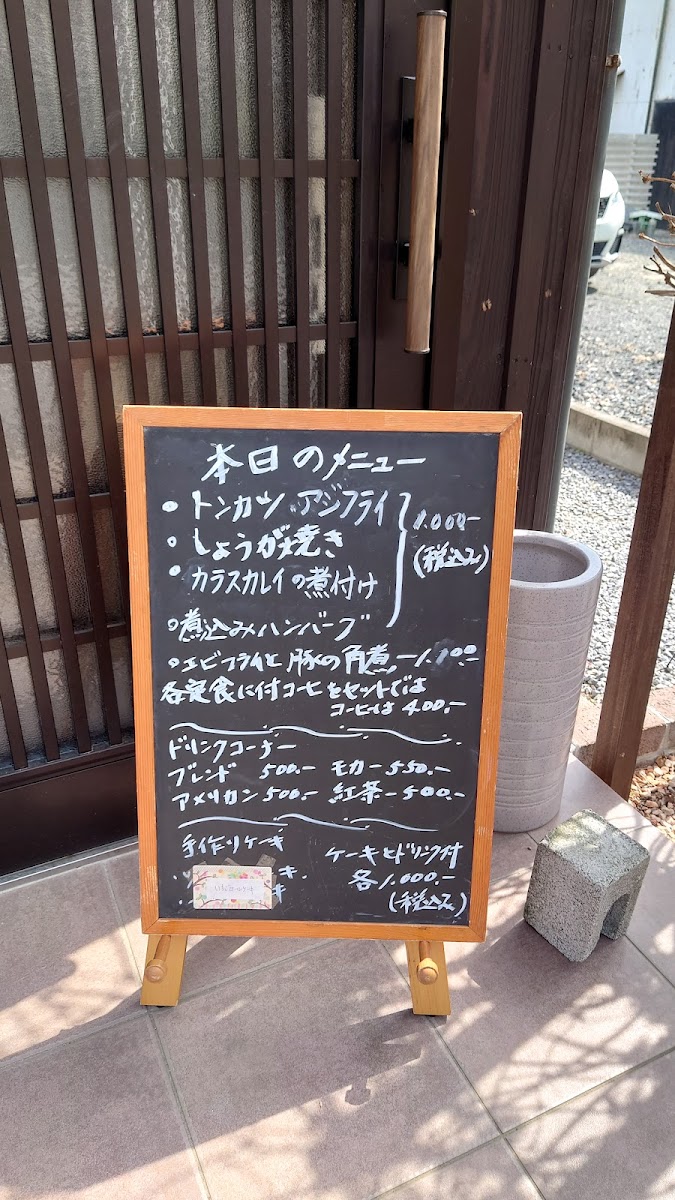 本日のメニュー
・トンカツ、アジフライ
・しょうが焼き
・カラスカレイの煮付け
1.000-
(税込み)
・煮込みハンバーグ
・エビフライと豚の角煮-1.100-
各定食に付コーヒをセットでは
コーヒは400.-
ドリンクコーナー
ブレンド 500.- モカー550.-
アメリカン500.- 紅茶-500.-
手作りケーキ
ケーキとドリンク付
各1.000.-
(税込み)
キ.
キ